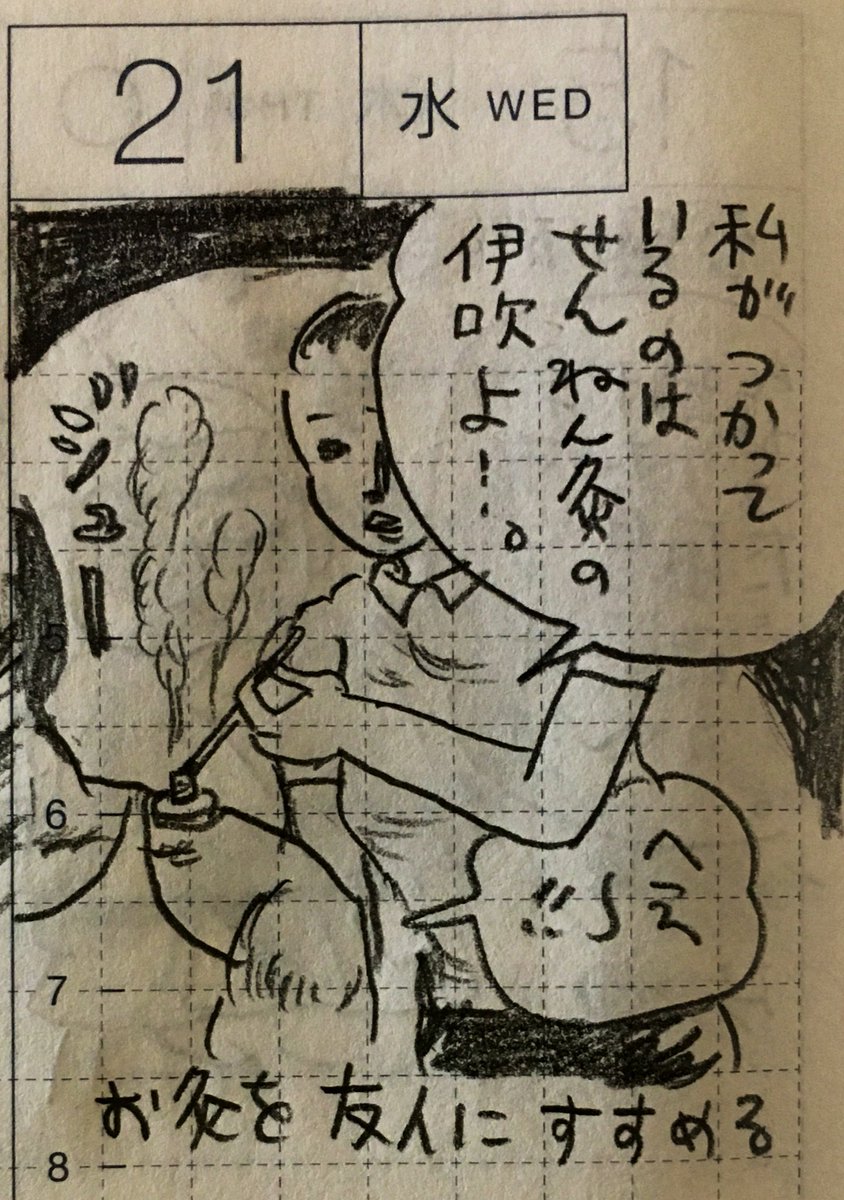 21
水 WED
私がつかって
いるのは
せんねん灸の
伊吹よー。
へえ
〜!!
5
6
7
お灸を友人にすすめる
8